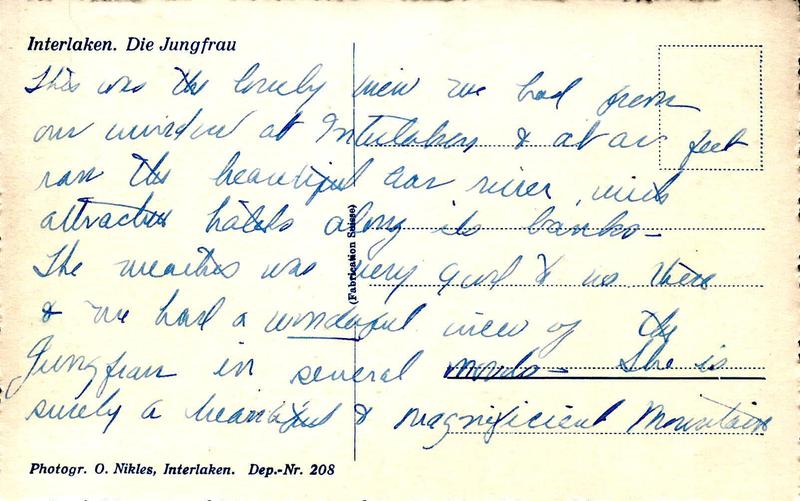 Interlaken. Die Jungfrau
This was the lovely view we had from
our window at Interlaken & at our feet
ran the beautiful Aar river, with
attractive hotels along its banks –
The weather was very good to us there
& we had a wonderful view of the
Jungfrau in several moods – She is
surely a beautiful & magnificient Mountain
(Fabrication Suisse)
Photogr. O. Nikles, Interlaken. Dep.-Nr. 208